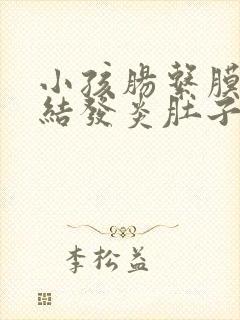 小孩腸繫膜
結發炎肚子
李松益